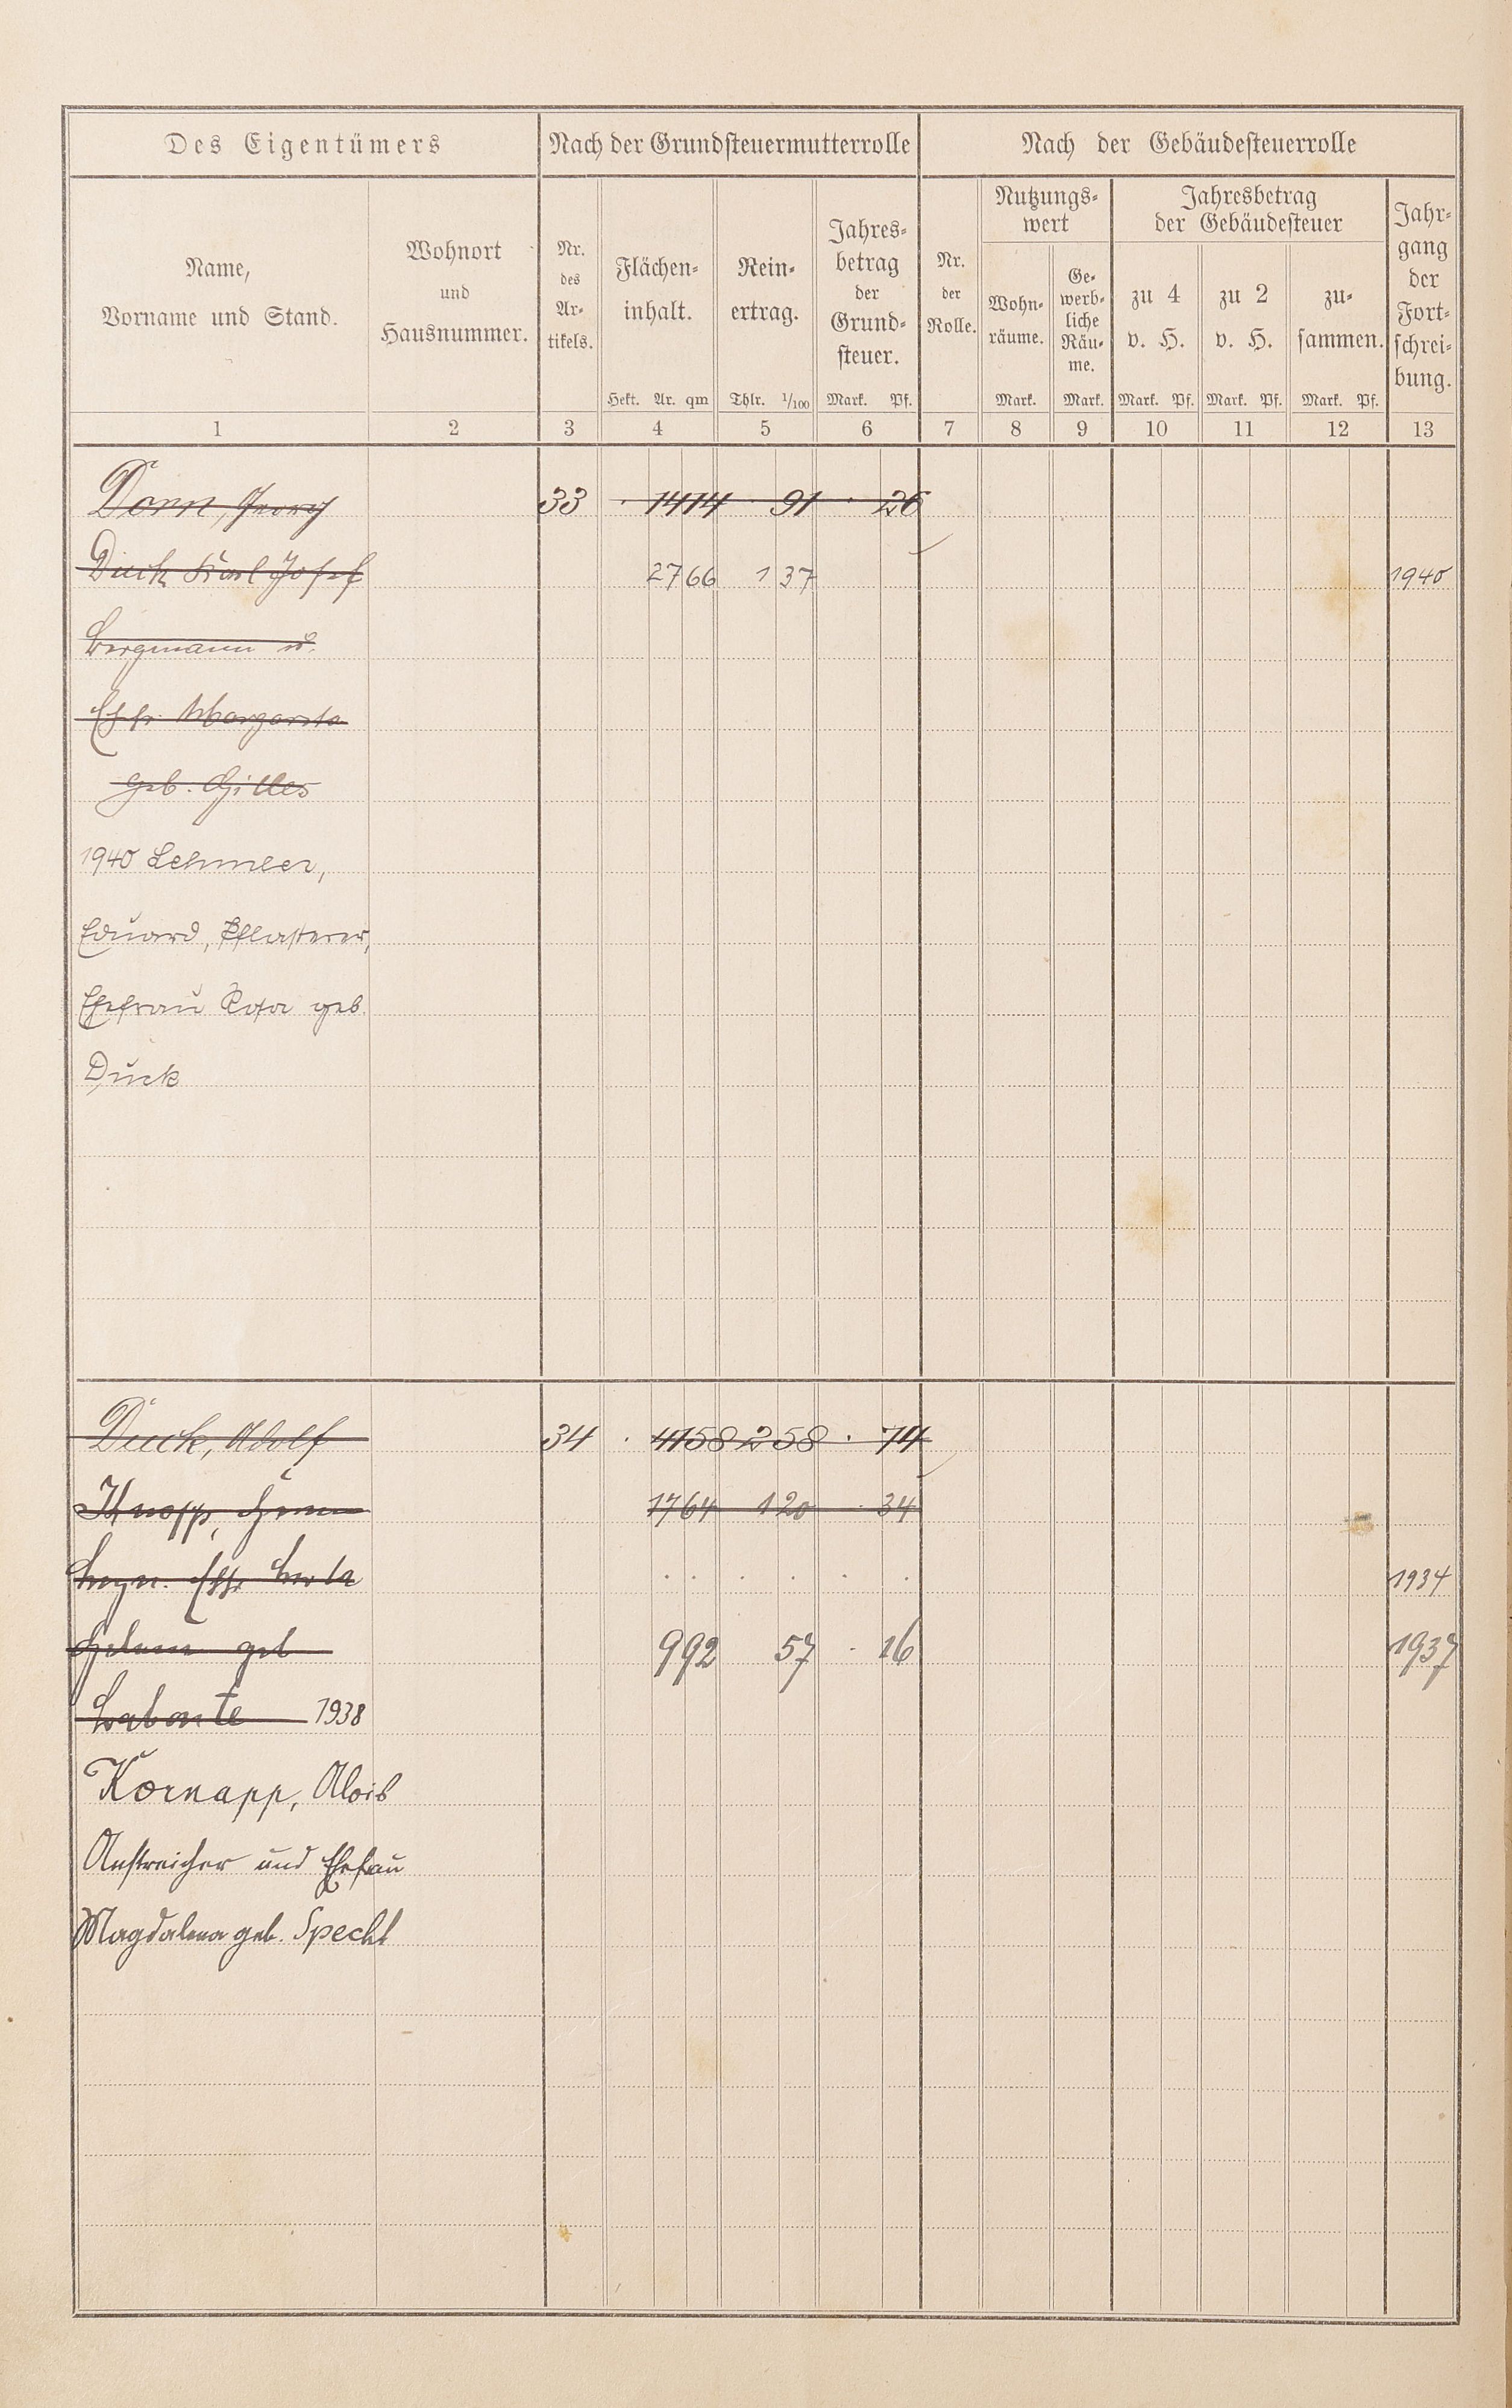 Des Eigentümers
Nach der Grundsteuermutterrolle
Nach der Gebäudesteuerrolle
Name,
Vorname und Stand.
Wohnort
und
Hausnummer.
Nr.
des
Ar-
tikels.
Flächen-
inhalt.
Hekt. Ar. qm
Rein-
ertrag.
Thlr. 1/100
Jahres-
betrag
der
Grund-
steuer.
Mark. Pf.
Nr.
der
Rolle.
Nutzungs-
wert
Wohn-
räume.
Mark.
Ge-
werb-
liche
Räu-
me.
Mark.
Jahresbetrag
der Gebäudesteuer
zu 4
v. H.
Mark. Pf.
zu 2
v. H.
Mark. Pf.
zu-
sammen.
Mark. Pf.
Jahr-
gang
der
Fort-
schrei-
bung.
1 2 3 4 5 6 7 8 9 10 11 12 13
Dorn, Georg 33 · 1414 91 · 26
Duck Karl Josef 2766 1 37 1940
Bergmann u.
Ehfr. Margareta
geb. Gilles
1940 Lehmler,
Eduard, Pflasterer,
Ehefrau Rosa geb.
Duck
Duck, Adolf 34 · 4158 258 · 74
Knopp, 1764 120 · 34
Ehfr. Berta 1934
geb 992 57 · 16 1937
Labonte 1938
Kornapp, Alois
Anstreicher und Ehefrau
Magdalena geb. Specht